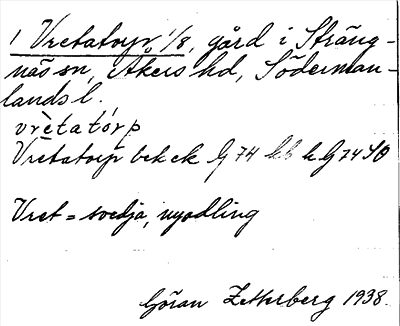 1 Vretatorp, 1/8, gård i Sträng-
näs sn, Åkers hd, Söderman-
lands l.
vrètatórp
Vretatorp bek ek G 74 kG 74 SO
Vret = svedja, nyodling
Göran Zetterberg 1938.